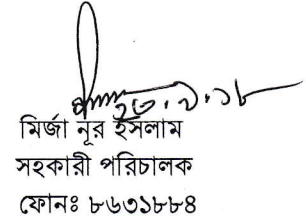 ২৩.৯.১৮
মির্জা নূর ইসলাম
সহকারী পরিচালক
ফোনঃ ৮৬৩১৮৮৪